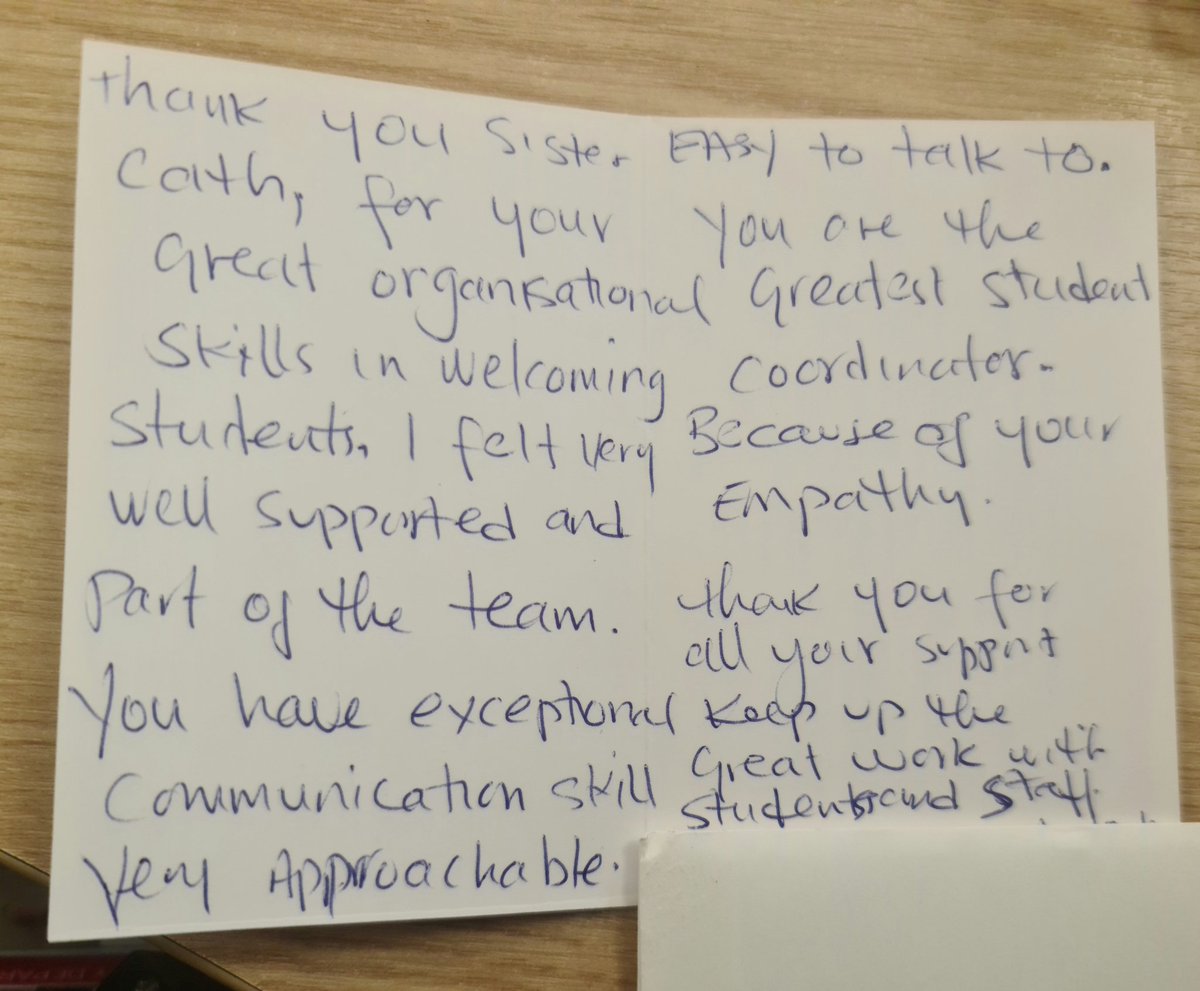 thank you Sister
Cath, for your
Great organisational
Skills in welcoming
Students. I felt very
well supported and
Part of the team.
You have exceptional
Communication skill
Very Approachable.
EASY to talk to.
You are the
Greatest student
Coordinator.
Because of your
Empathy.
thank you for
all your support
Keep up the
Great work with
students and staff.